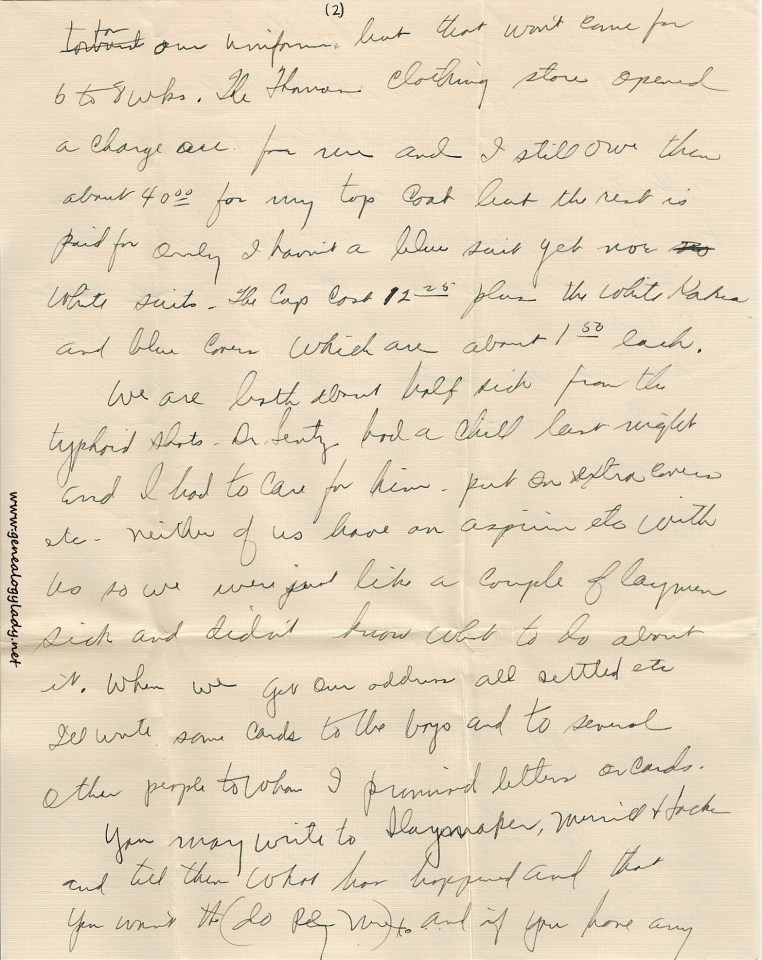 (2)
to
toward our uniforms but that won't come for
6 to 8 wks. The Thomas clothing store opened
a charge acc. for me and I still owe them
about 40 00 for my top coat but the rest is
paid for only I havn't a blue suit yet nor no
white suits - The Cap cost 12 25 plus the white Kakai
and blue covers which are about 1 50 each.
We are both about half sick from the
typhoid shots - Dr. Lentz had a chill last night
and I had to care for him - put on extra covers
etc - neither of us have an aspirin etc with
us so we were just like a couple of laymen
sick and didn't know what to do about
it. When we get our address all settled etc
I'll write some cards to the boys and to several
other people to whom I promised letters or cards.
You may write to Slaymaker, Merrill &
and tell them what has happened and that
you want the (do and if you have any
www.genealogylady.net